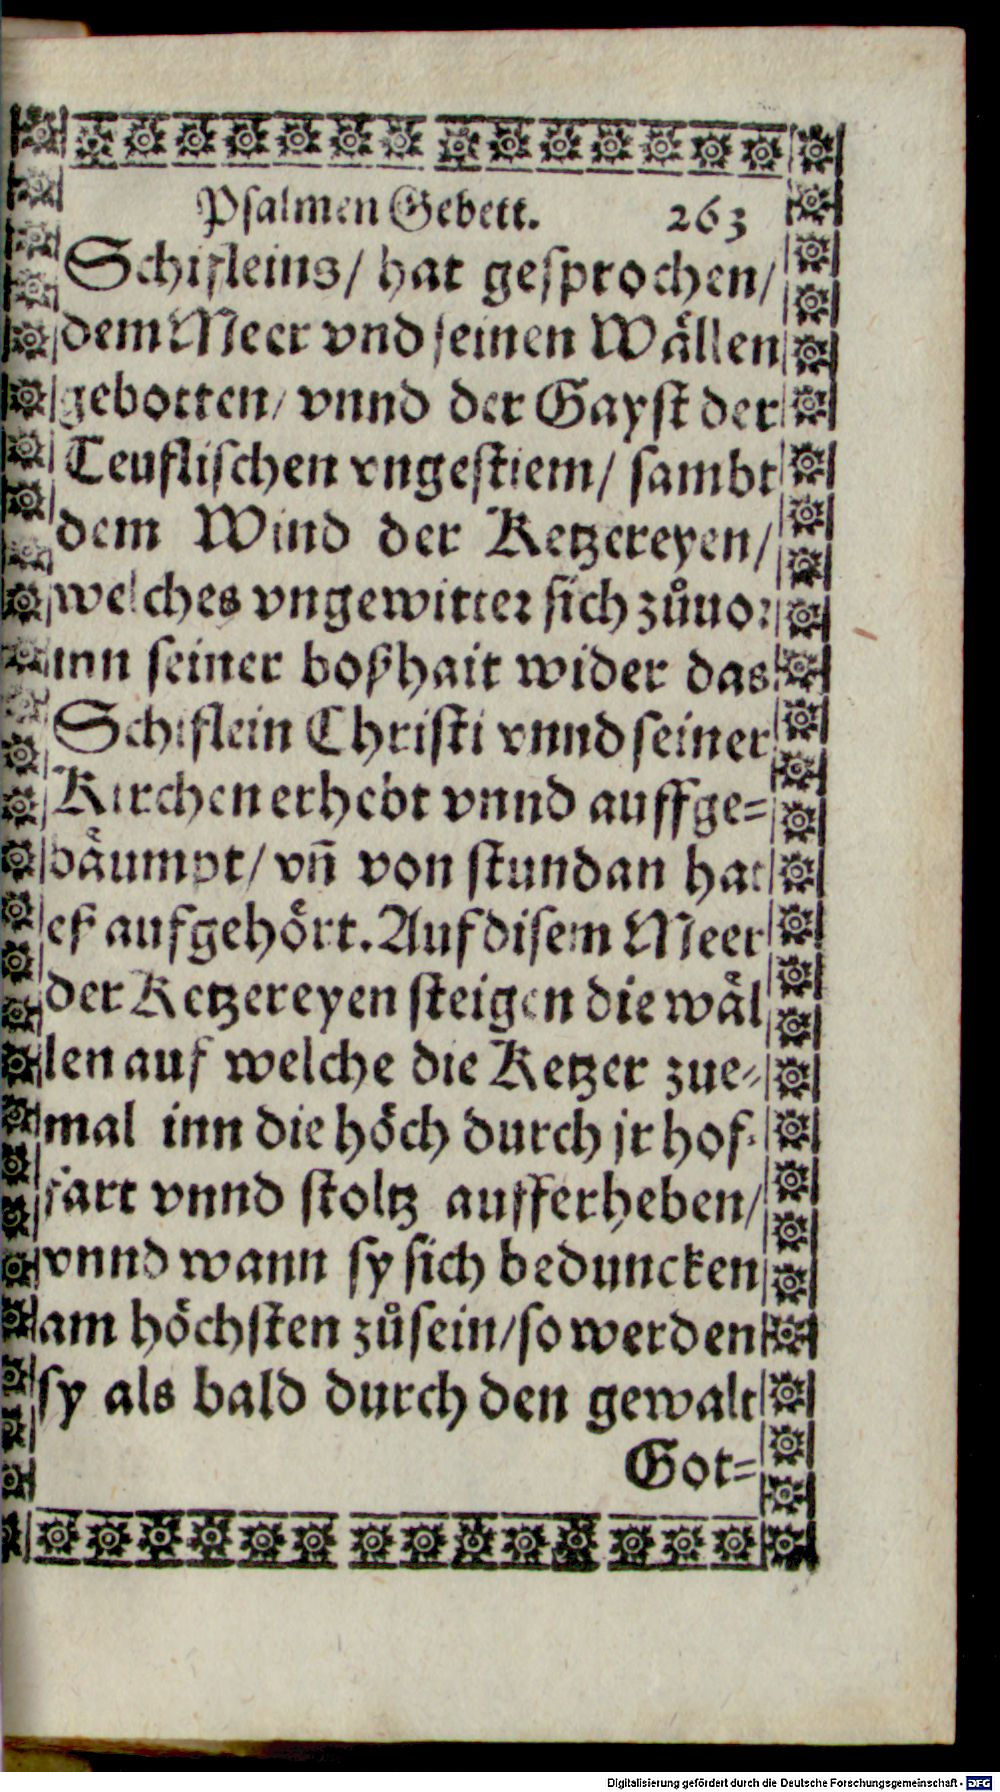 Psalmen Gebett. 263
Schifleins/ hat gesprochen/
dem Meer vnd seinen Wällen
gebotten/ vnnd der Gayst der
Teuflischen vngestiem/ sambt
dem Wind der Ketzereyen/
welches vngewitter sich zůuor
inn seiner boßhait wider das
Schiflein Christi vnnd seiner
Kirchen erhebt vnnd auffge=
bäumpt/ vñ von stundan hat
eß aufgehört. Auf disem Meer
der Ketzereyen steigen die wäl
len auf welche die Ketzer zue=
mal inn die höch durch jr hof=
fart vnnd stoltz aufferheben/
vnnd wann sy sich beduncken
am höchsten zů sein/ so werden
sy als bald durch den gewalt
Got=
Digitalisierung gefördert durch die Deutsche Forschungsgemeinschaft - DFG